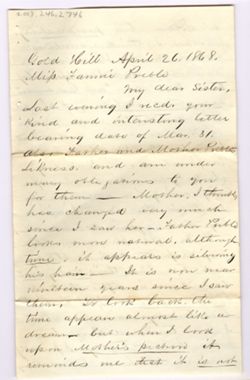 2009.246.2796
Gold Hill April 26, 1868.
Miss Fannie Preble
My dear Sister,
Last evening I recd. your
kind and interesting letter
bearing date of Mar. 31.
Also Father and Mother Preble
likness. and am under
many obligations to you
for them — Mother, I think,
has changed very much
since I saw her — Father Preble
looks more natural, although
time it appears is silvering
his hair — It is now near
nineteen years since I saw
them, To look back. the
time appears almost like a
dream — but when I look
upon Mother's picture it
reminds me that it is not